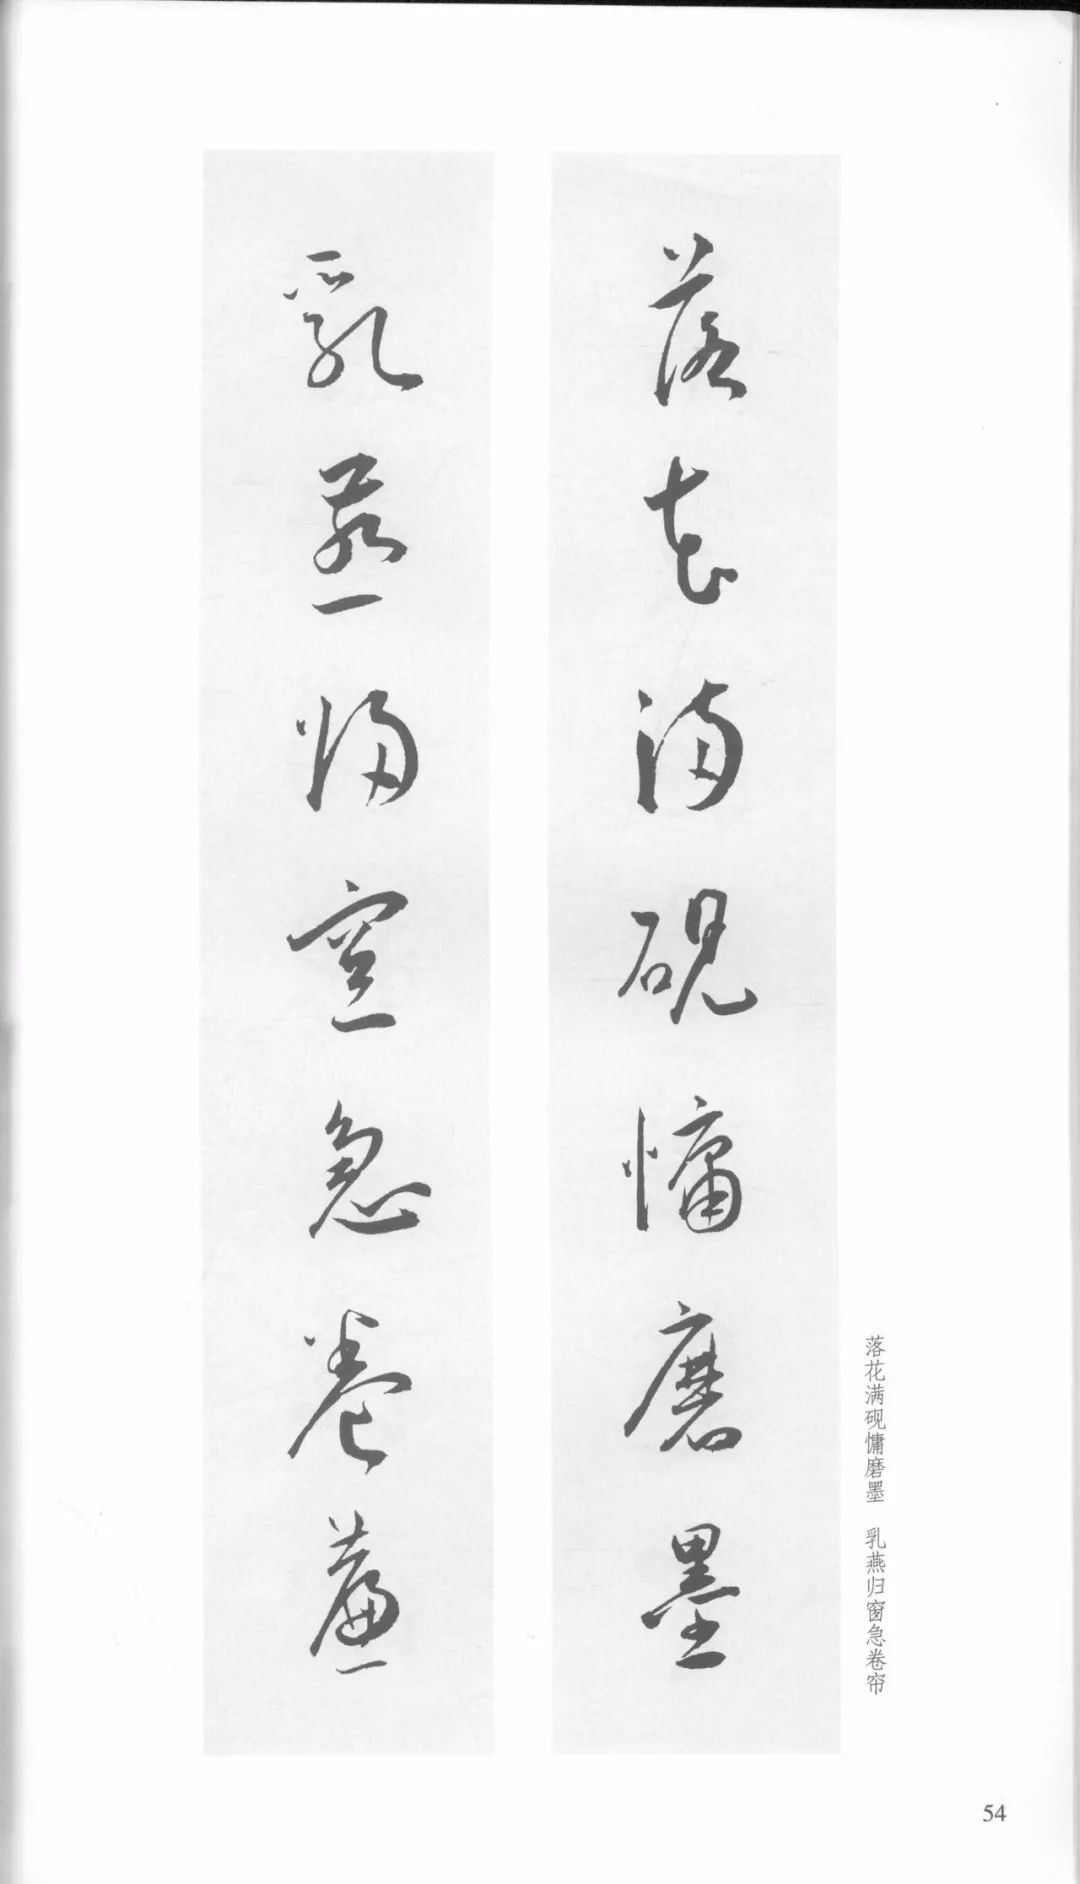 落花满砚慵磨墨
乳燕归窗急卷帘
落花满砚慵磨墨 乳燕归窗急卷帘
54